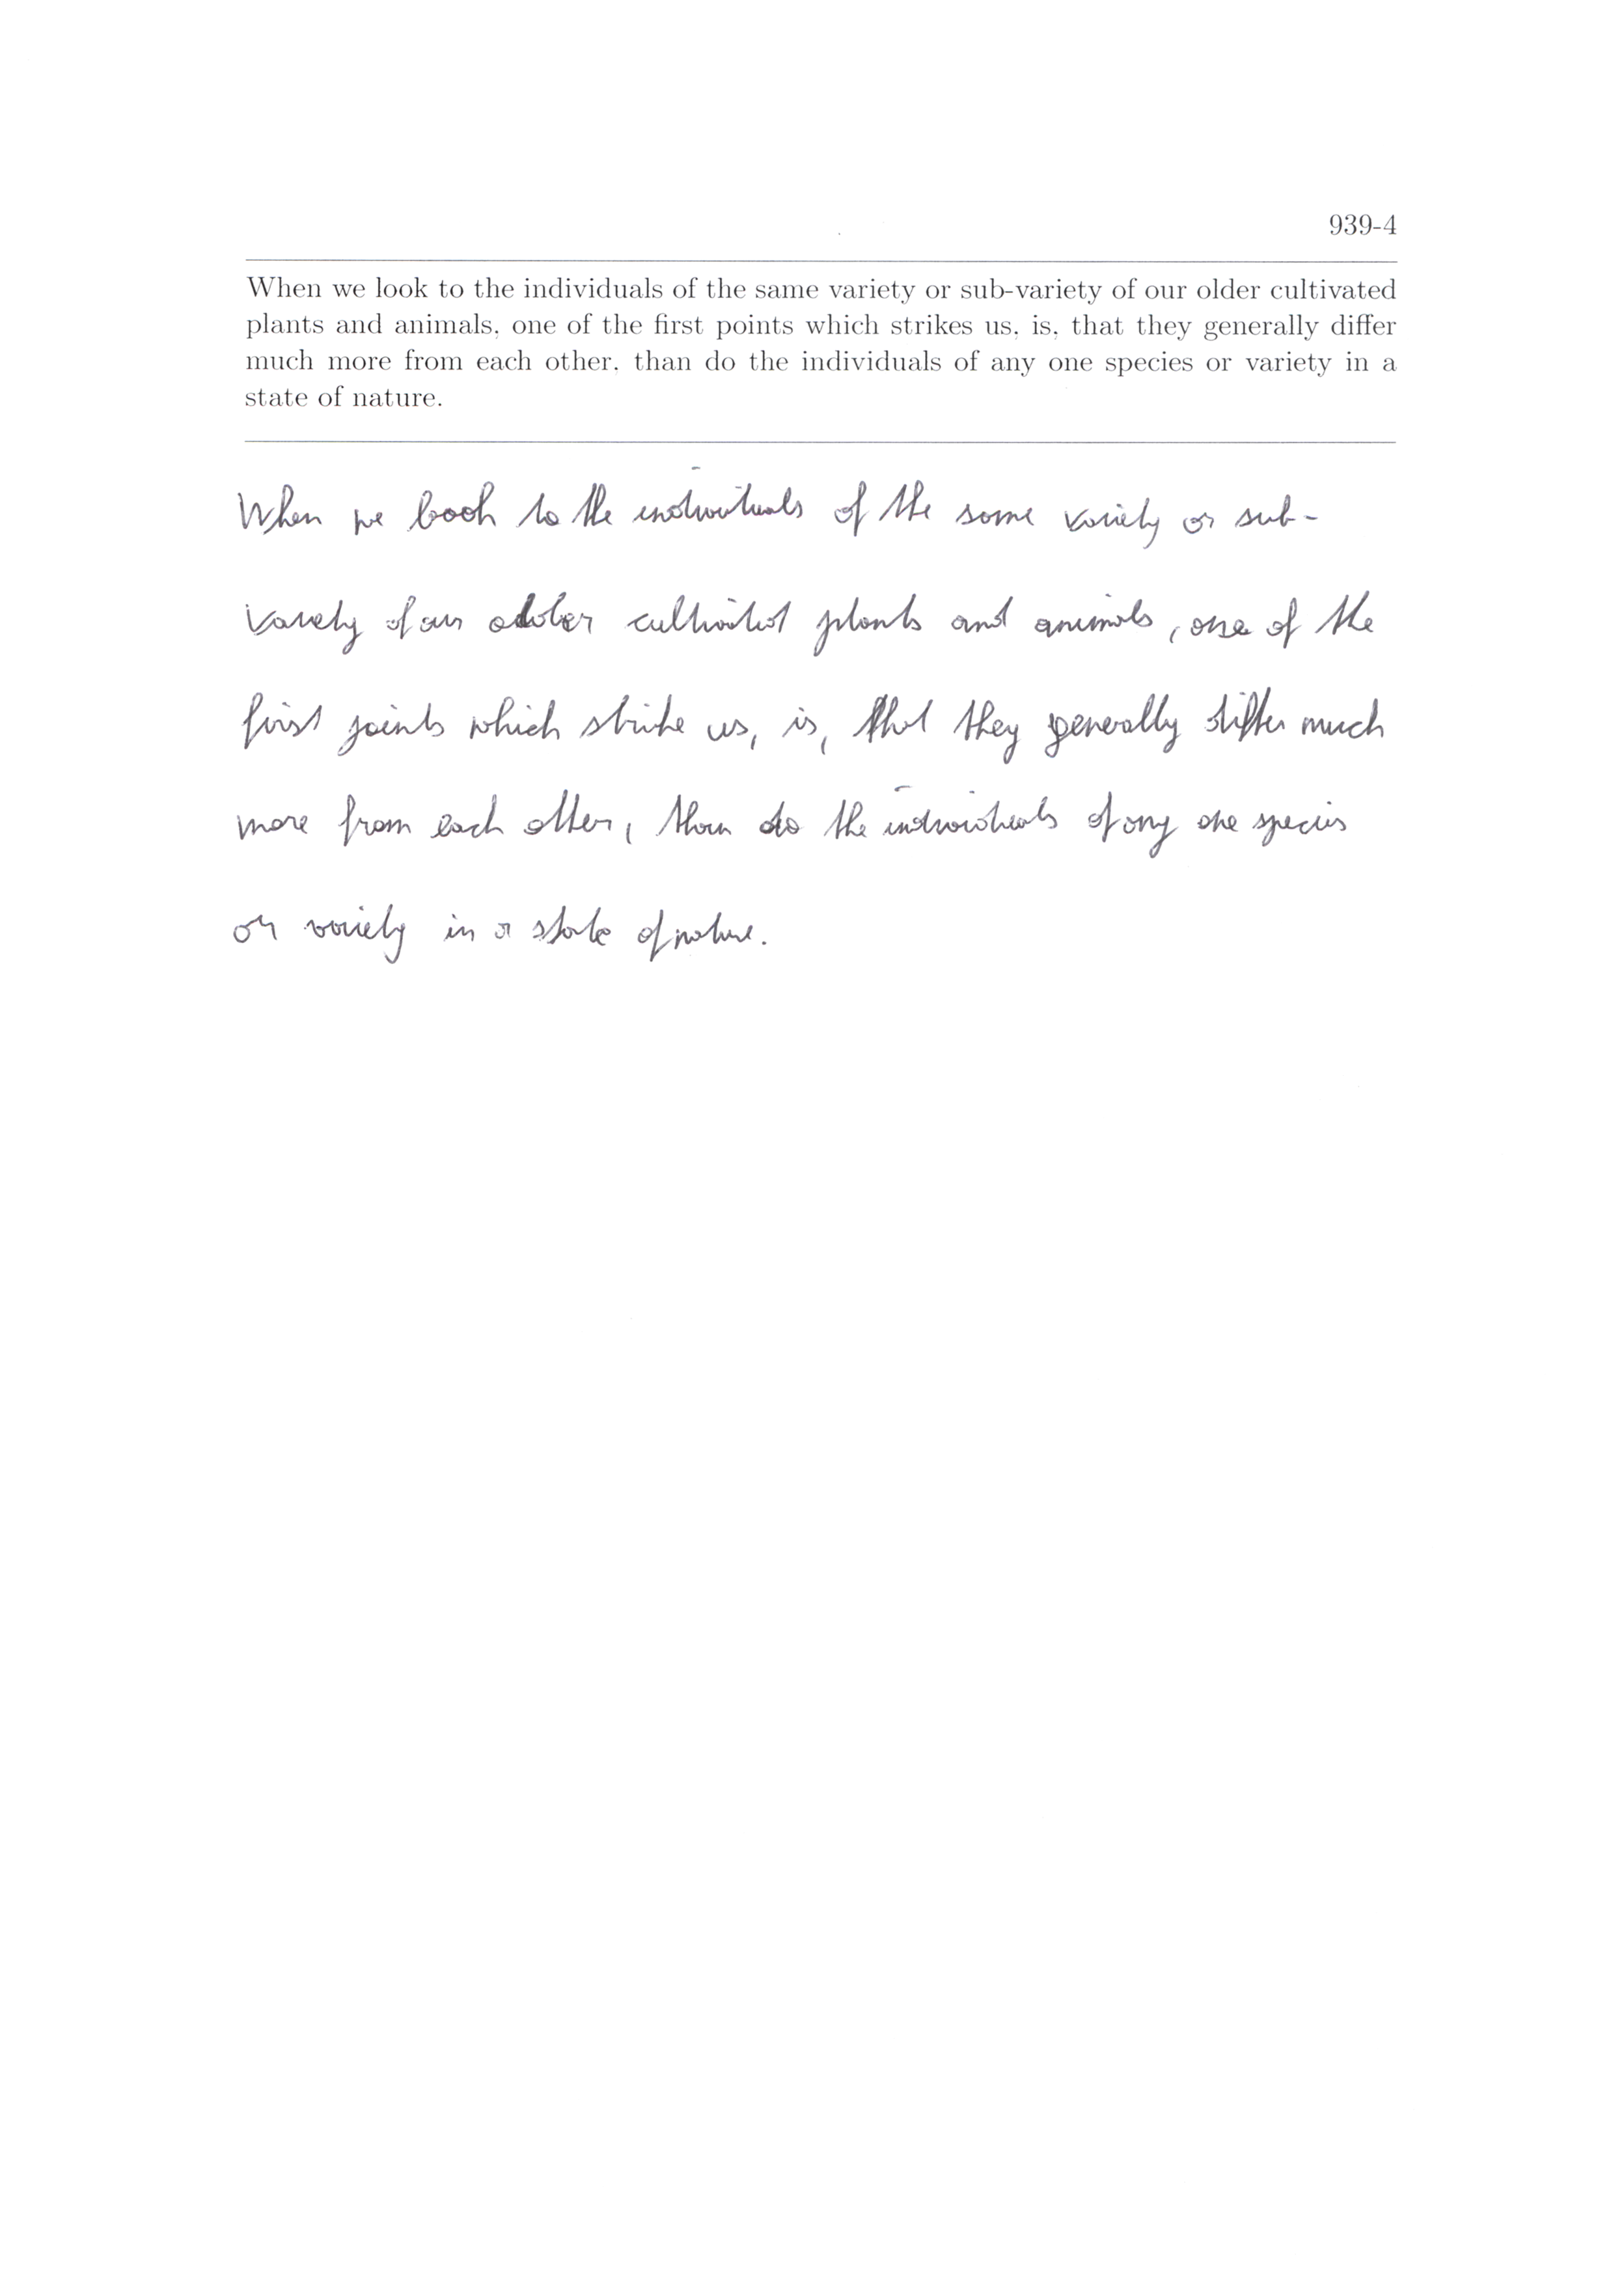 939-4
When we look to the individuals of the same variety or sub-variety of our older cultivated
plants and animals, one of the first points which strikes us, is, that they generally differ
much more from each other, than do the individuals of any one species or variety in a
state of nature.
When we look to the individuals of the same variety or sub-
variety of our older cultivated plants and animals, one of the
first points which strike us, is, that they generally differ much
more from each other, than do the individuals of any one species
or variety in a state of nature.